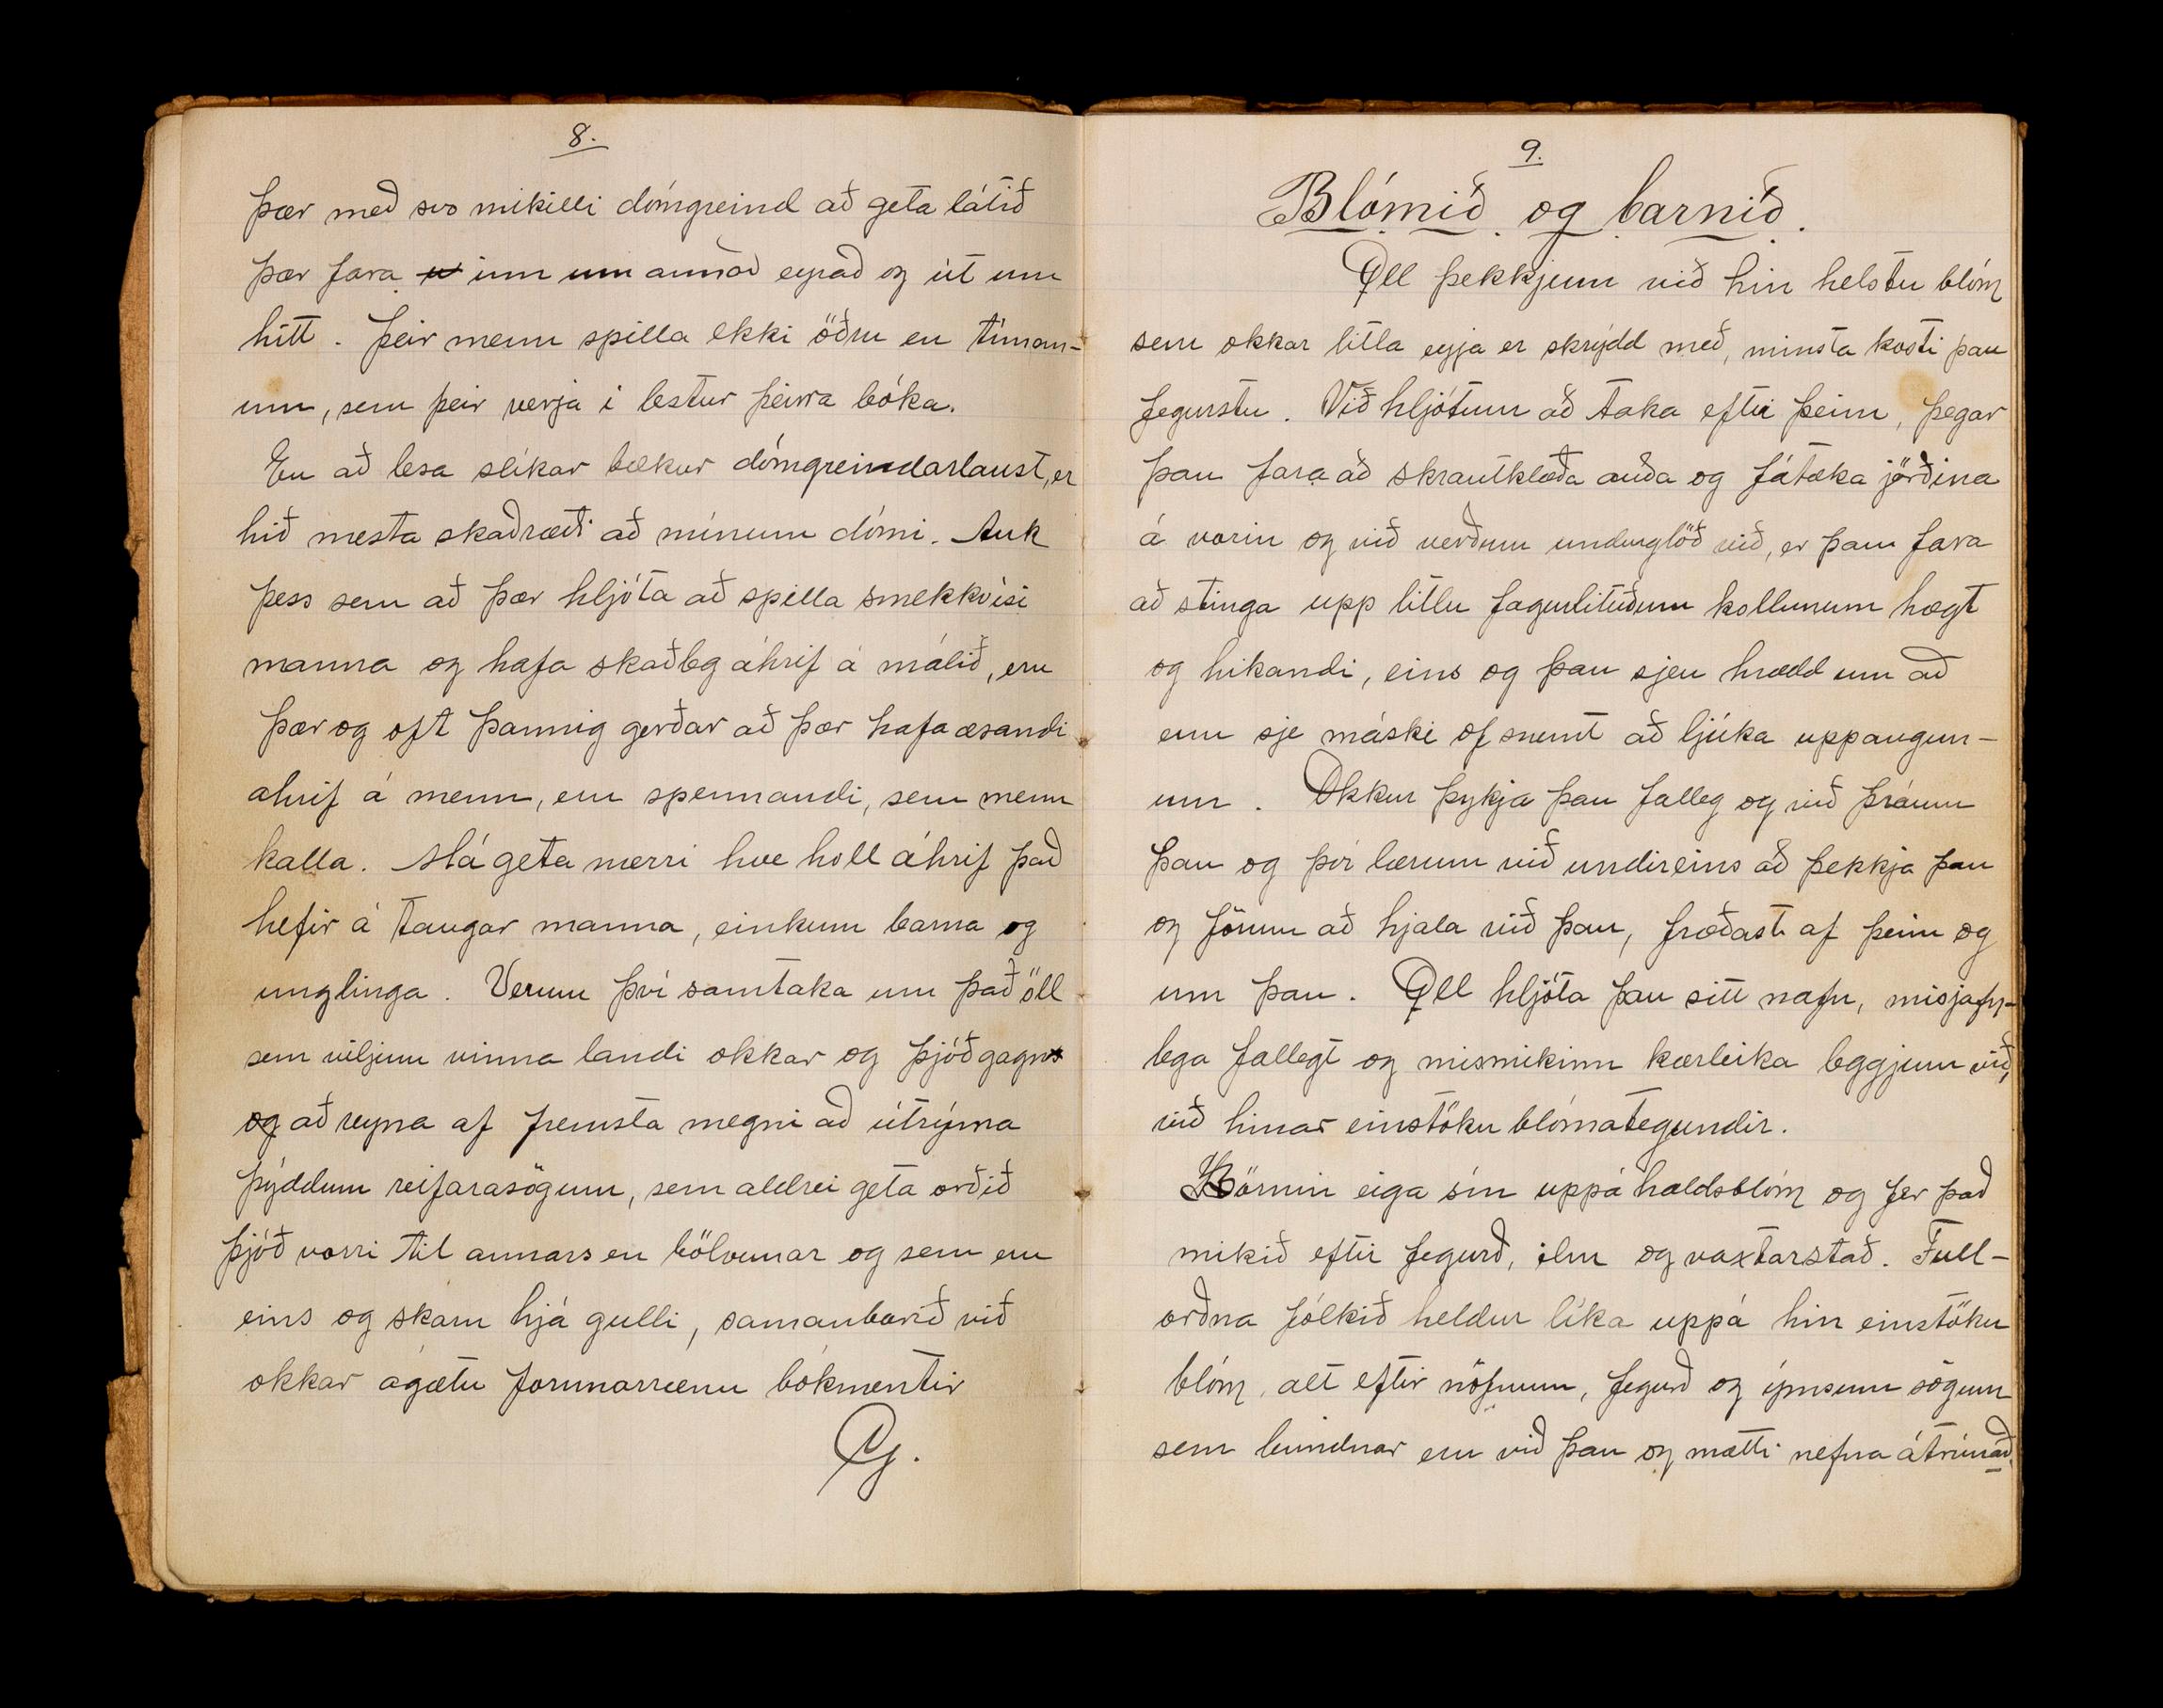 8.
þær með svo mikilli dómgreind að geta látið
þær fara inn um annað eyrað og út um
hitt. Þeir menn spilla ekki öðru en tíman-
um, sem þeir verja í lestur þeirra bóka.
En að lesa slíkar bækur dómgreindarlaust, er
hið mesta skaðræði að mínum dómi. Auk
þess sem að þær hljóta að spilla smekkvísi
manna og hafa skaðleg áhrif á málið, eru
þær og oft þannig gerðar að þær hafa æsandi
ahrif á menn, eru spennandi, sem menn
kalla. Má geta nærri hve holl áhrif það
hefir á taugar manna, einkum barna og
unglinga. Verum því samtaka um það öll
sem viljum vinna landi okkar og þjóð gagn
og að reyna af fremsta megni að útrýma
þýddum reifarasögum, sem aldrei geta orðið
þjóð vorri til annars en bölvunar og sem eru
eins og skarn hjá gulli, samanborið við
okkar ágætu fornnorrænu bókmentir
9.
Blómið og barnið.
Öll þekkjum við hin helstu blóm
sem okkar litla eyja er skrýdd með, minsta kosti þau
fegurstu. Við hljótum að taka eftir þeim, þegar
þau fara að skrautklæða auða og fátæka jörðina
á vorin og við verðum undurglöð við, er þau fara
að stinga upp litlu fagurlituðum kollunum hægt
og hikandi, eins og þau sjeu hrædd um að
enn sje máski of snemt að ljúka upp augun-
um. Okkur þykja þau falleg og við þráum
þau og því lærum við undireins að þekkja þau
og förum að hjala við þau, fræðast af þeim og
um þau. Öll hljóta þau sitt nafn, misjafn-
lega fallegt og mismikinn kærleika leggjum við,
við hinar einstöku blómategundir.
Börnin eiga sín uppáhaldsblóm og fer það
mikið eftir fegurð, ilm og vaxtarstað. Full-
orðna fólkið heldur líka uppá hin einstöku
blóm, alt eftir nöfnum, fegurð og ýmsum sögum
sem bundnar eru við þau og mætti nefna átrúnað.